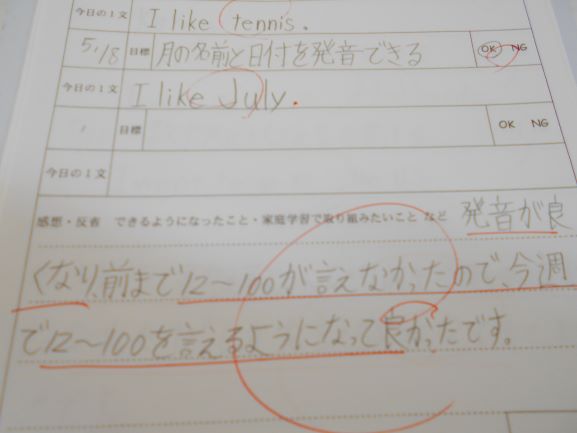 今日の1文 I like tennis.
5/18 目標 月の名前と日付を発音できる OK NG
今日の1文 I like July.
/ 目標 OK NG
今日の1文
感想・反省 できるようになったこと・家庭学習で取り組みたいこと など 発音が良
くなり、前まで12〜100が言えなかったので、今週
で12〜100を言えるようになって良かったです。